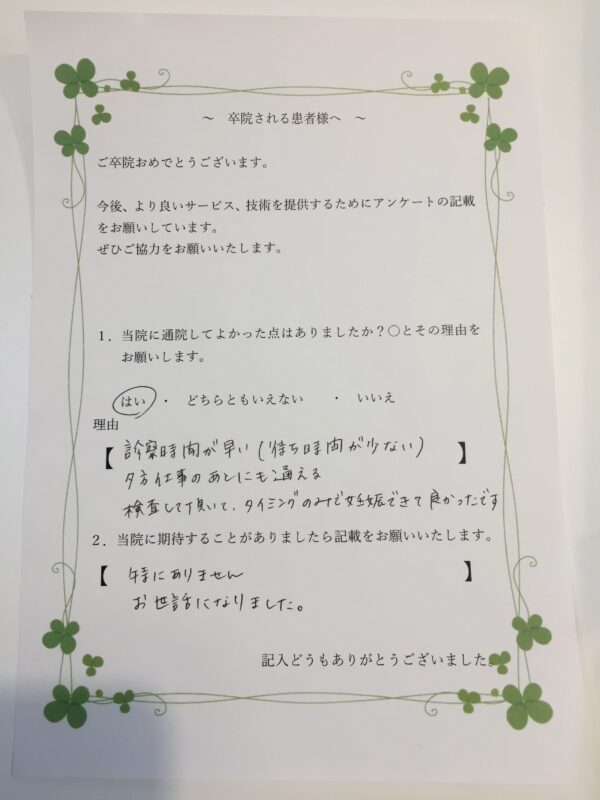 ～　卒院される患者様へ　～
ご卒院おめでとうございます。
今後、より良いサービス、技術を提供するためにアンケートの記載
をお願いしています。
ぜひご協力をお願いいたします。
１．当院に通院してよかった点はありましたか？〇とその理由を
お願いします。
はい　・　どちらともいえない　　・　いいえ
理由
【 診察時間が早い（待ち時間が少ない） 】
夕方仕事のあとにも通える
検査して頂いて、タイミングのみで妊娠できて良かったです
２．当院に期待することがありましたら記載をお願いいたします。
【 特にありません 】
お世話になりました。
記入どうもありがとうございました。